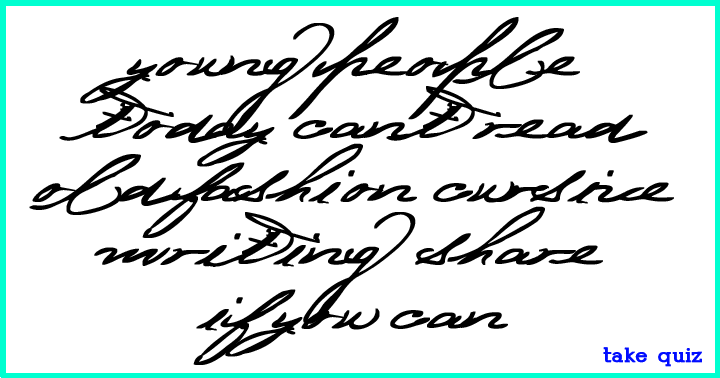 young people
today cant read
old fashion cursive
writing share
if you can
take quiz